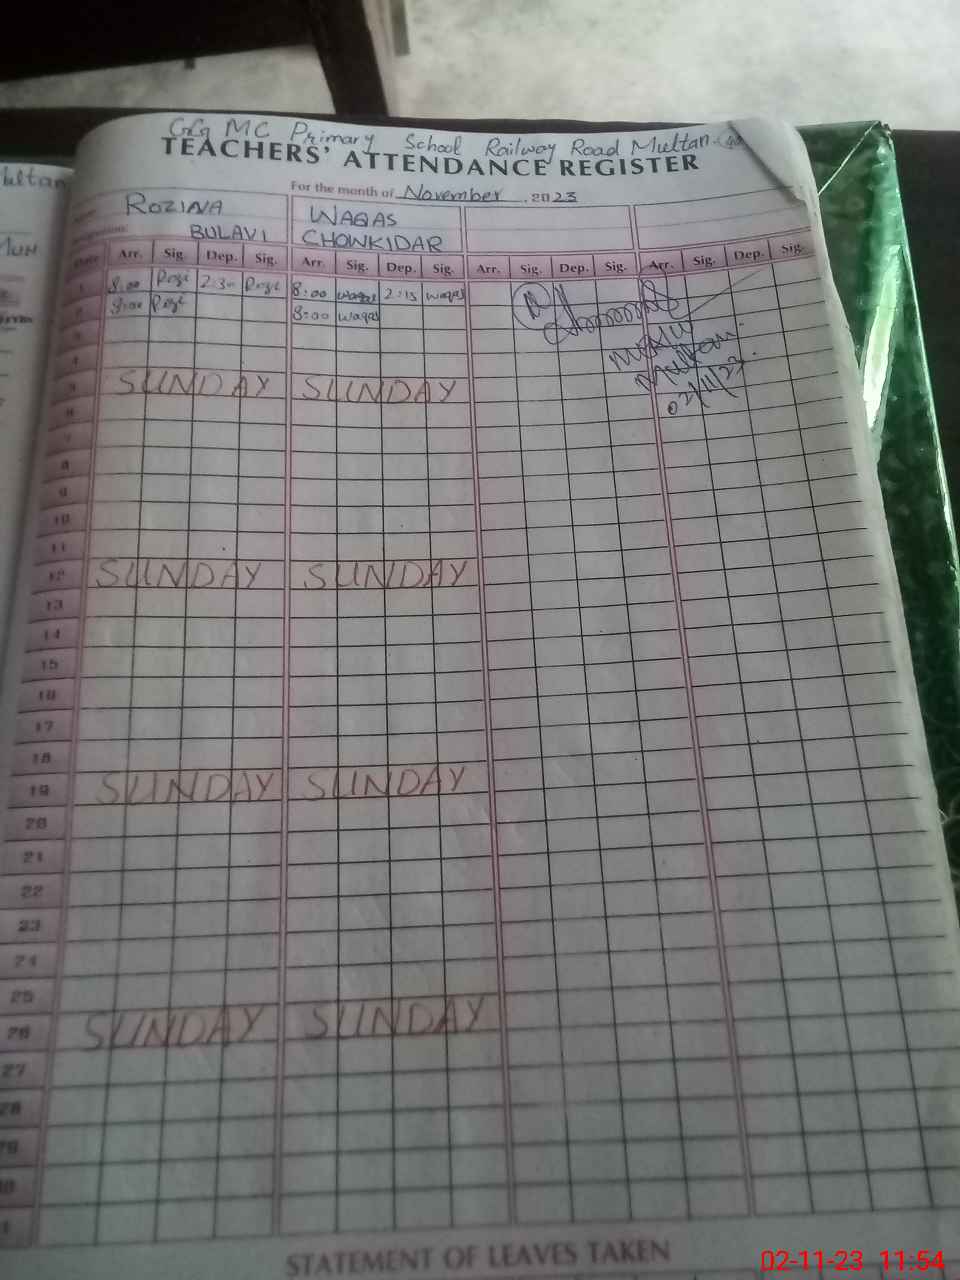 GG MC Primary School Railway Road Multan
TEACHERS' ATTENDANCE REGISTER
For the month of November, 2023
ROZINA WAQAS
BULAVI CHOWKIDAR
Date Arr. Sig. Dep. Sig. Arr. Sig. Dep. Sig. Arr. Sig. Dep. Sig. Arr. Sig. Dep. Sig.
1 8:00 Rozi 2:30 Rozi 8:00 waqas 2:15 waqas
2 8:00 Rozi 8:00 waqas
3
4
5 SUNDAY SUNDAY
6
7
8
9
10
11
12 SUNDAY SUNDAY
13
14
15
16
17
18
19 SUNDAY SUNDAY
20
21
22
23
24
25
26 SUNDAY SUNDAY
27
28
29
Multan
02/11/23
STATEMENT OF LEAVES TAKEN
02-11-23 11:54